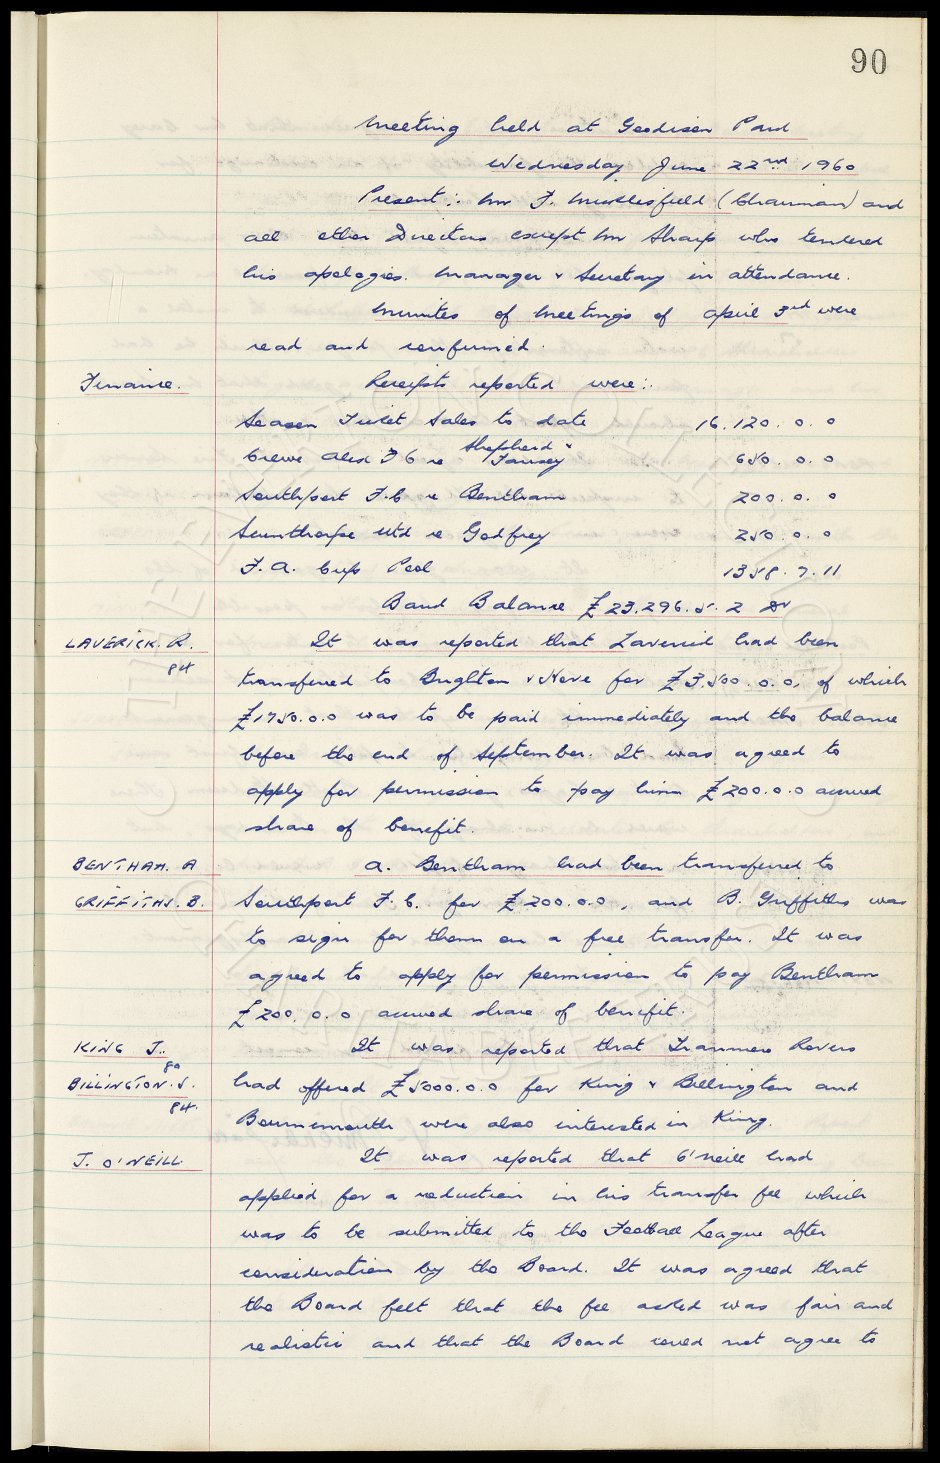 90
Meeting held at Goodison Park
Wednesday June 22nd 1960
Present:. Mr F. Micklesfield (Chairman) and
all other Directors except Mr Sharp who tendered
his apologies. Manager & Secretary in attendance.
Minutes of Meetings of April 3rd were
read and confirmed.
Finance. Receipts reported were:.
Season Ticket Sales to date 16.120. 0. 0
Crewe Alex F C re Shepherd & Tansey 650. 0. 0
Southport F.C re Bentham 200. 0. 0
Scunthorpe Utd re Godfrey 250. 0. 0
F.A. Cup Pool 1358. 7. 11
Bank Balance £23.296. 5. 2 Dr
LAVERICK. R. It was reported that Laverick had been
84
transferred to Brighton & Hove for £3.500. 0. 0, of which
£1750. 0. 0 was to be paid immediately and the balance
before the end of September. It was agreed to
apply for permission to pay him £200. 0. 0 accrued
share of benefit.
BENTHAM. A A. Bentham had been transferred to
GRIFFITHS. B. Southport F.C. for £200. 0. 0, and B. Griffiths was
to sign for them on a free transfer. It was
agreed to apply for permission to pay Bentham
£200. 0. 0 accrued share of benefit.
KING J. It was reported that Tranmere Rovers
80
BILLINGTON. S. had offered £5000. 0. 0 for King & Billington and
84.
Bournemouth were also interested in King.
J. O'NEILL It was reported that O'Neill had
applied for a reduction in his transfer fee which
was to be submitted to the Football League after
consideration by the Board. It was agreed that
the Board felt that the fee asked was fair and
realistic and that the Board could not agree to